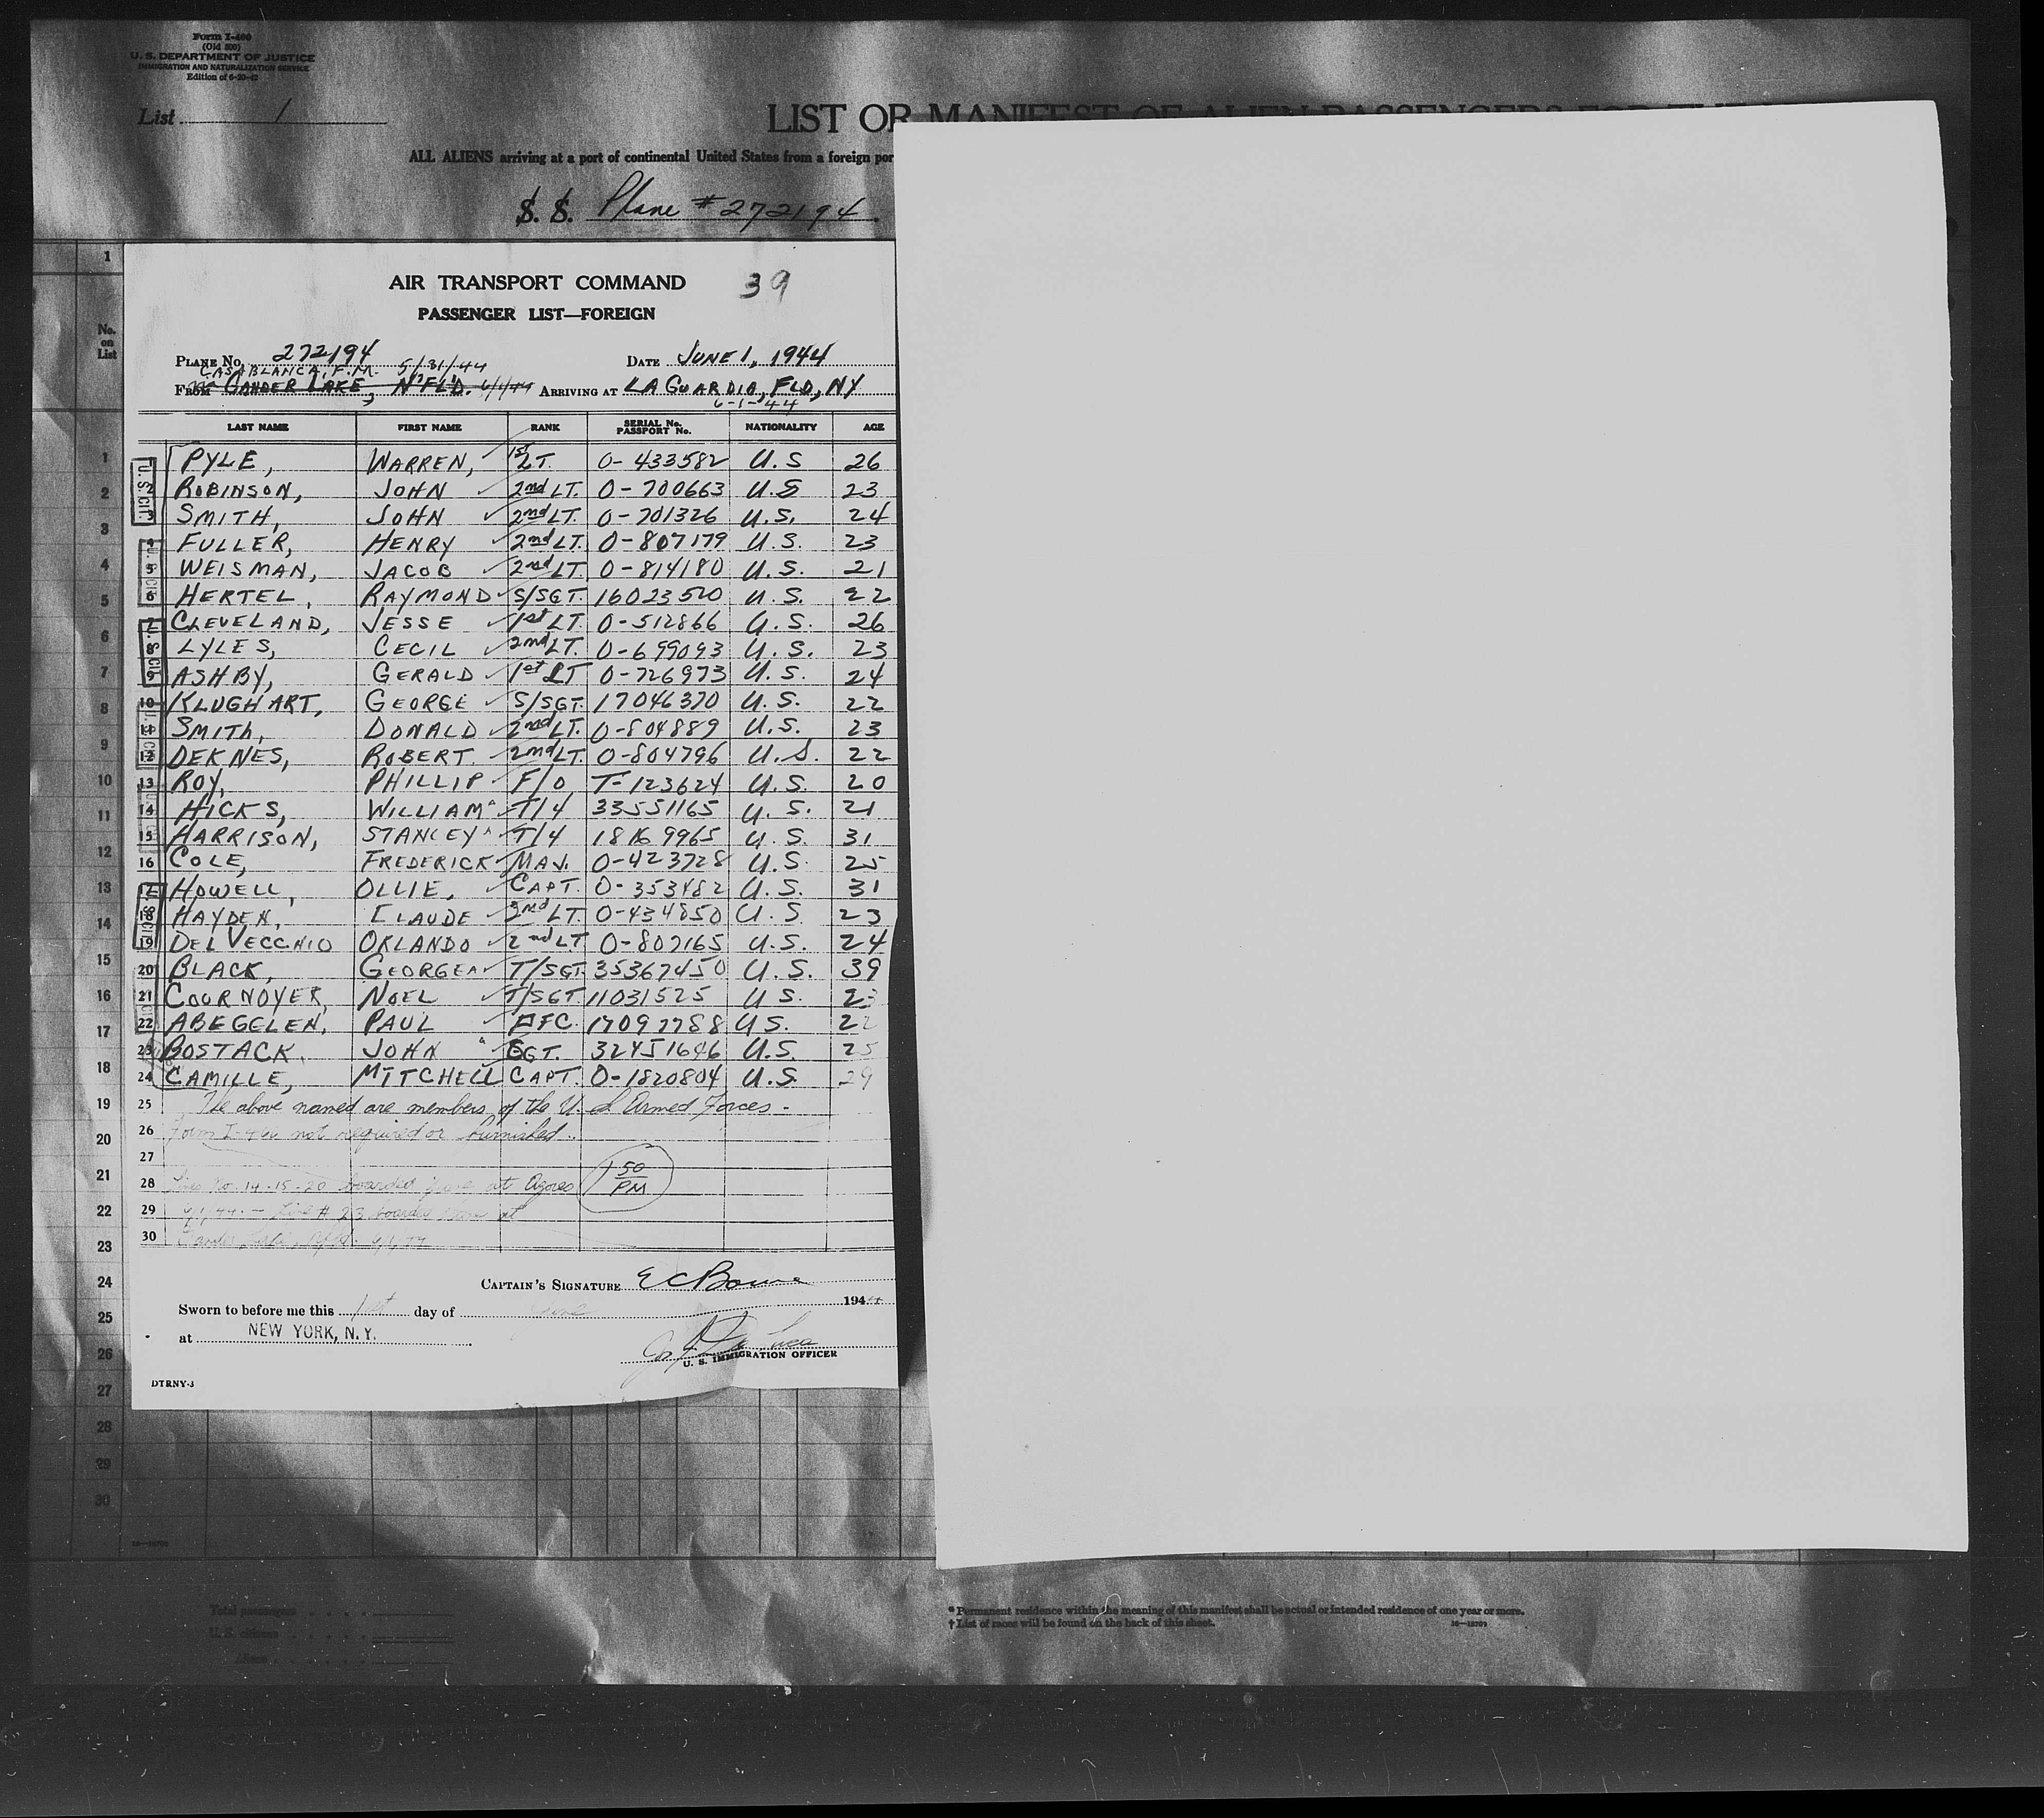 Form I-400
(Old 500)
U. S. DEPARTMENT OF JUSTICE
IMMIGRATION AND NATURALIZATION SERVICE
Edition of 6-20-42
List 1
LIST OR MANIFEST OF ALIEN PASSENGERS FOR THE
ALL ALIENS arriving at a port of continental United States from a foreign por
S. S. Plane # 272194
AIR TRANSPORT COMMAND 39
PASSENGER LIST—FOREIGN
PLANE No. 272194 DATE JUNE 1, 1944
CASABLANCA, F.M. 5/31/44
FROM GANDER LAKE, N'FL'D. 6/1/44 ARRIVING AT LA GUARDIA, FLD, NY
6-1-44
No. on List
LAST NAME FIRST NAME RANK SERIAL No. PASSPORT No. NATIONALITY AGE
1 PYLE, WARREN, 1st LT. O-433582 U.S 26
2 ROBINSON, JOHN 2nd LT. O-700663 U.S 23
3 SMITH, JOHN 2nd LT. O-701326 U.S. 24
4 FULLER, HENRY 2nd LT. O-807179 U.S. 23
5 WEISMAN, JACOB 2nd LT. O-814180 U.S. 21
6 HERTEL, RAYMOND S/SGT. 16023520 U.S. 22
7 CLEVELAND, JESSE 1st LT. O-512866 U.S. 26
8 LYLES, CECIL 2nd LT. O-699093 U.S. 23
9 ASHBY, GERALD 1st LT O-726973 U.S. 24
10 KLUGHART, GEORGE S/SGT. 17046370 U.S. 22
11 SMITH, DONALD 2nd LT. O-804889 U.S. 23
12 DEKNES, ROBERT 2nd LT. O-804796 U.S. 22
13 ROY, PHILLIP F/O T-123624 U.S. 20
14 HICKS, WILLIAM T/4 33551165 U.S. 21
15 HARRISON, STANLEY T/4 18169965 U.S. 31
16 COLE, FREDERICK MAJ. O-423728 U.S. 25
17 HOWELL, OLLIE, CAPT. O-353482 U.S. 31
18 HAYDEN, CLAUDE 2nd LT. O-434850 U.S 23
19 DEL VECCHIO ORLANDO 2nd LT O-802165 U.S. 24
20 BLACK, GEORGE T/SGT. 35367450 U.S. 39
21 COURNOYER, NOEL T/SGT. 11031525 U S. 23
22 ABEGELEN, PAUL PFC. 17097788 U S. 22
23 BOSTACK, JOHN SGT. 32451646 U.S. 25
24 CAMILLE, MITCHELL CAPT. O-1820804 U.S. 29
25 The above named are members of the U.S. Armed Forces -
26 Form I-466 not required or furnished.
27
28 Lines No. 14-15-20 boarded plane at Azores 1 50 PM
29 6/1/44. — Line # 23 boarded plane at
30 Gander Lake, Nfld. 6/1/44
CAPTAIN'S SIGNATURE E C Bowe
Sworn to before me this 1st day of June 1944
at NEW YORK, N. Y.
U. S. IMMIGRATION OFFICER
DTRNY-3
Total passengers
U. S. citizens
Aliens
* Permanent residence within the meaning of this manifest shall be actual or intended residence of one year or more.
† List of races will be found on the back of this sheet.